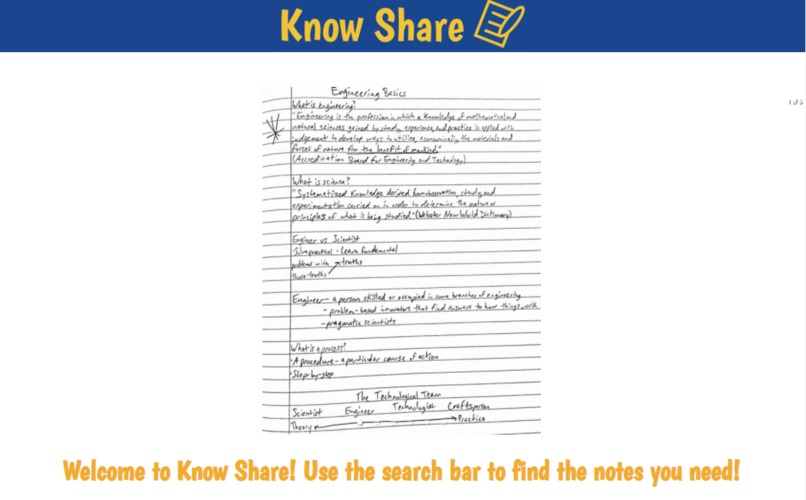 Know Share
Engineering Basics
What is engineering?
"Engineering is the profession in which a knowledge of mathematical and
natural sciences gained by study, experience, and practice is applied with
judgement to develop ways to utilize, economically, the materials and
forces of nature for the benefit of mankind."
(Accreditation Board for Engineering and Technology)
What is science?
"Systematized Knowledge derived from observation, study, and
experimentation carried on in order to determine the nature or
principles of what is being studied" (Webster New World Dictionary)
Engineer vs Scientist
· Solve practical · Learn fundamental
problems with truths
those truths
Engineer - a person skilled or occupied in some branches of engineering
- problem-based innovators that find answers to how things work
- pragmatic scientists
What is a process?
· A procedure - a particular course of action
· Step by step
The Technological Team
Scientist Engineer Technologist Craftsperson
Theory Practice
Welcome to Know Share! Use the search bar to find the notes you need!